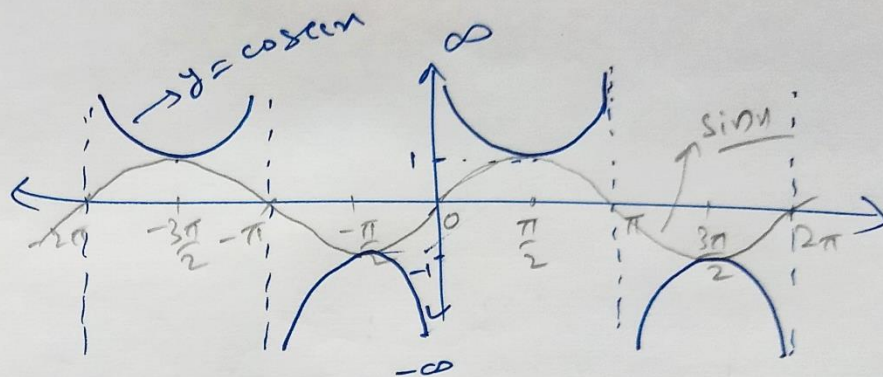 y = cosecx
∞
sinx
1
-2π -3π/2 -π -π/2 0 π/2 π 3π/2 2π
-1
-∞